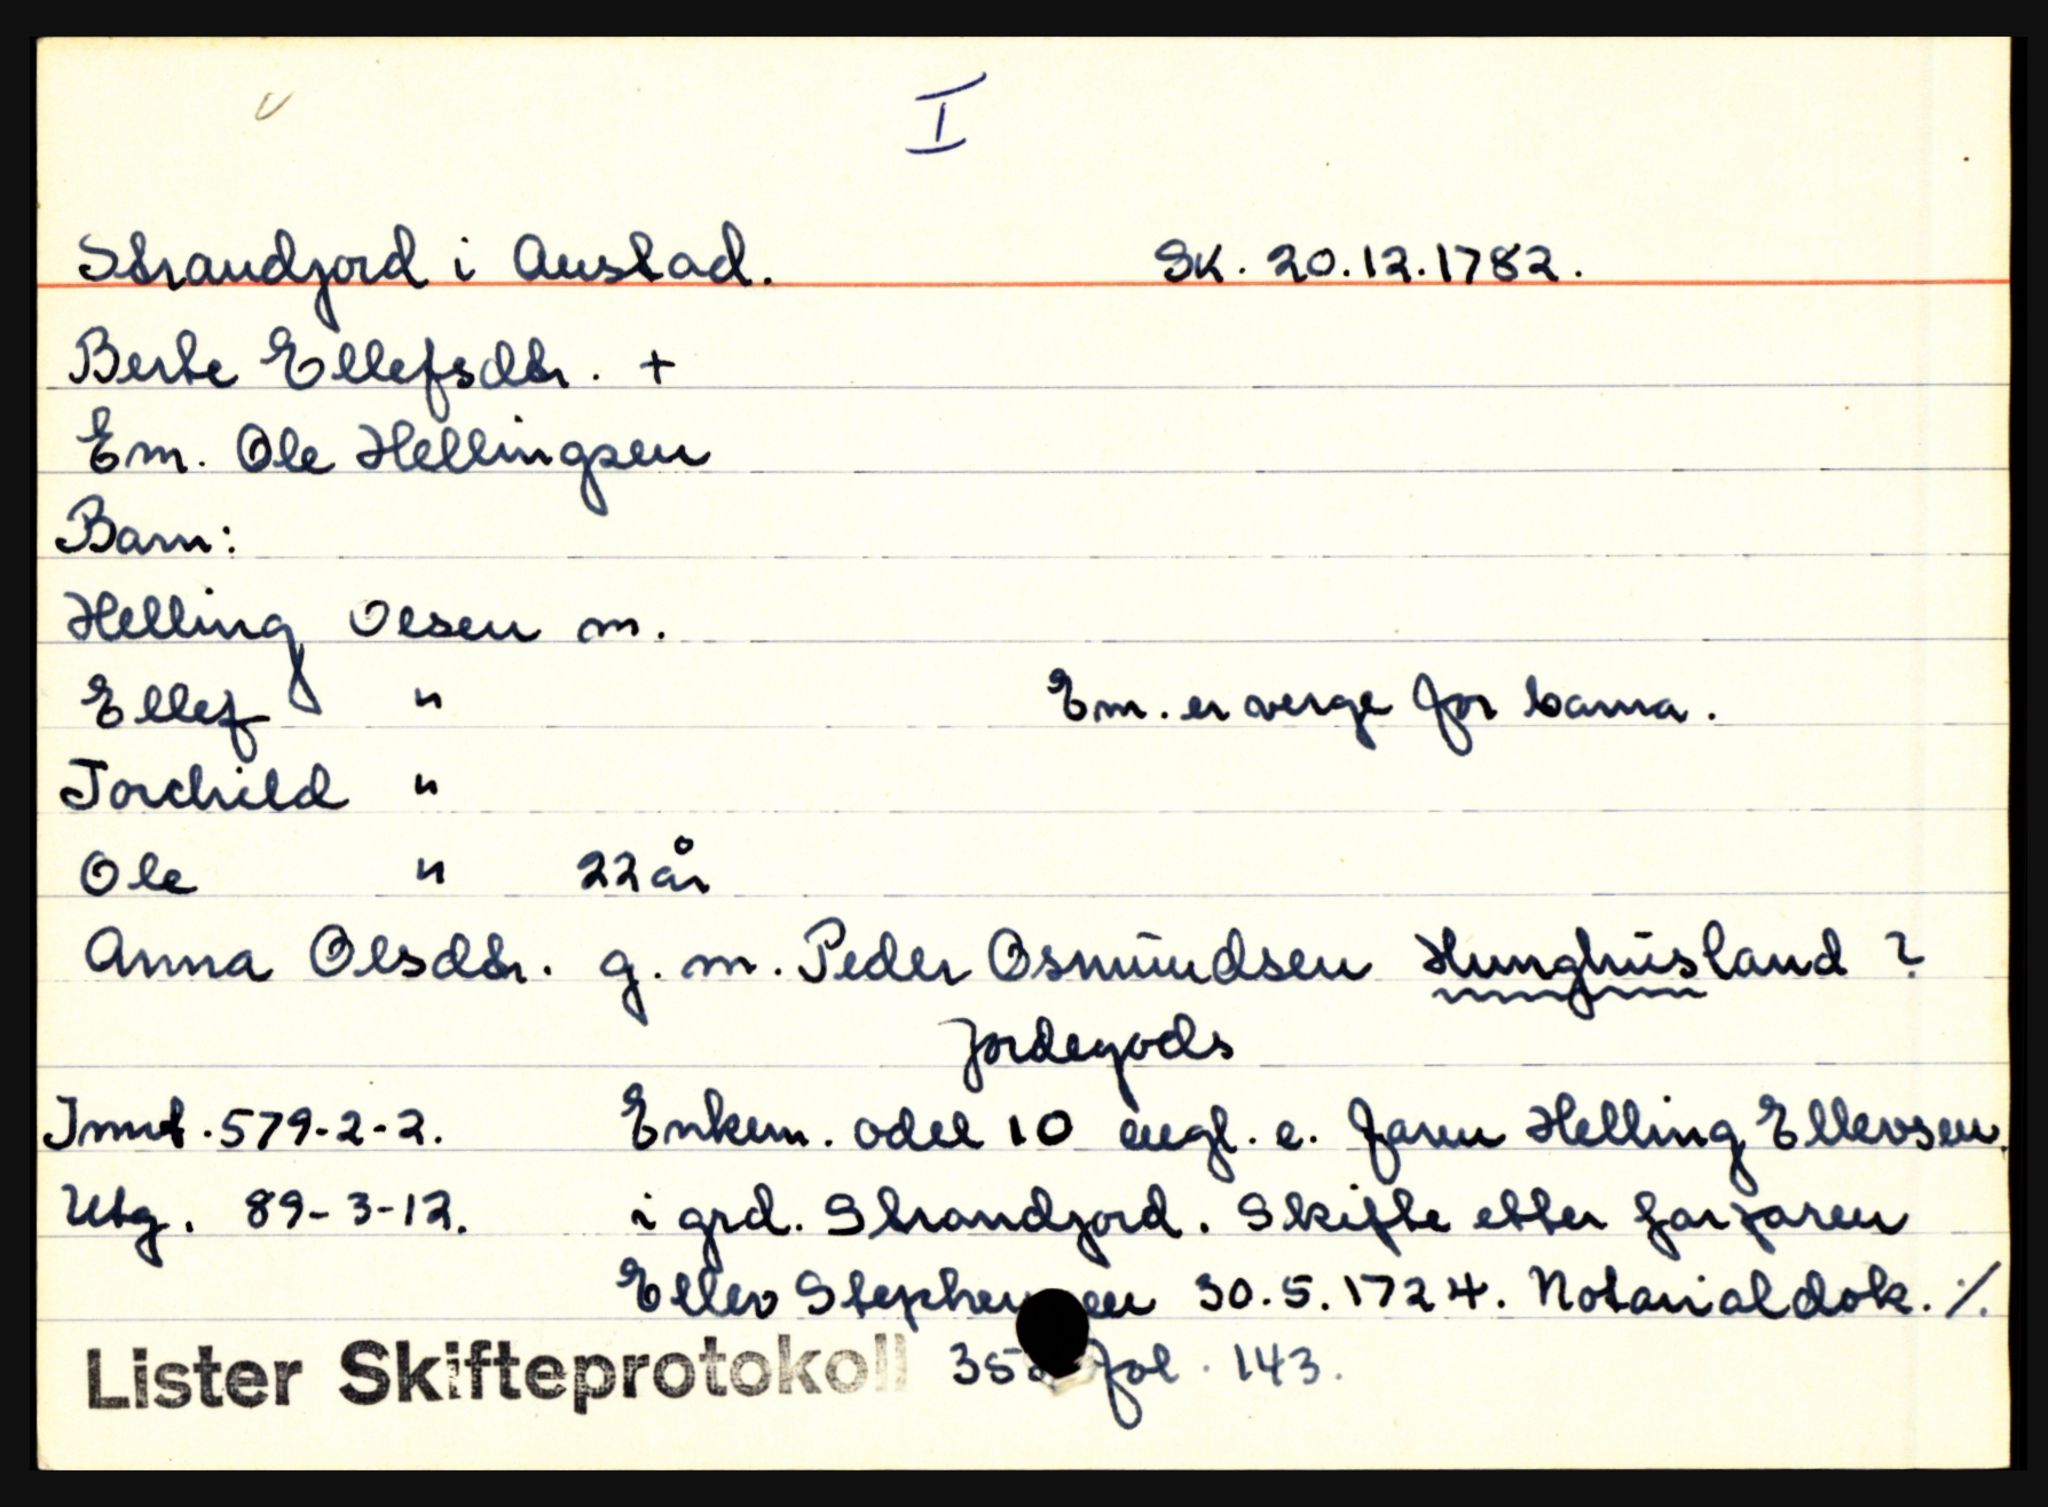 I
Strandjord i Austad. SK. 20.12.1782.
Berte Ellefsdtr. +
Em. Ole Hellingsen
Barn:
Helling Olsen m.
Ellef " Em. er verge for barna.
Torchild "
Ole " 22 år
Anna Olsdtr. g. m. Peder Osmundsen Hunghusland ?
Jordegods
Innt. 579-2-2. Enkem. odel 10 engl. e. faren Helling Ellevsen.
Utg. 89-3-12. i grd. Strandjord. Skifte etter farfaren
Ellev 30.5.1724. Notarialdok. ./.
Lister Skifteprotokoll fol. 143.